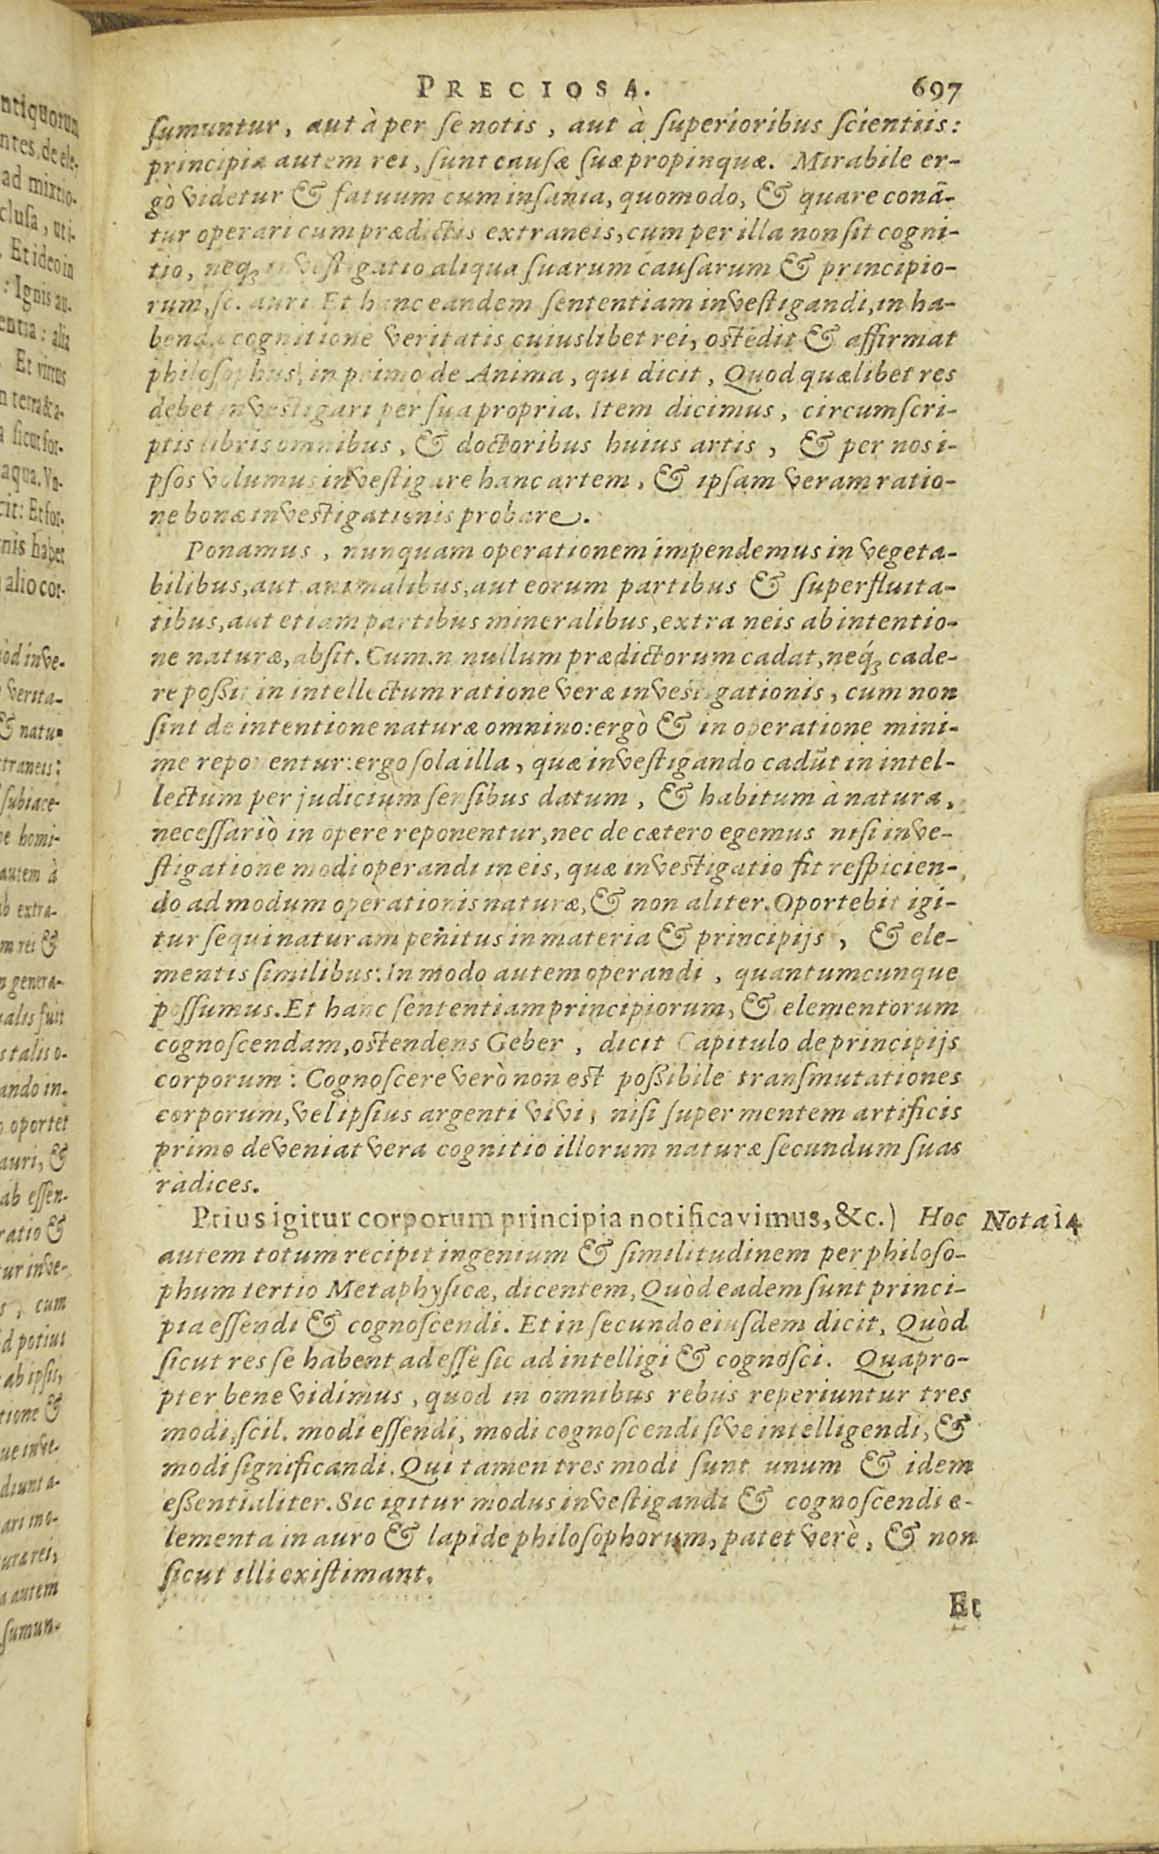 PRECIOSA. 697
sumuntur, aut à per se notis, aut à superioribus scientiis:
principia autem rei, sunt causæ suæ propinquæ. Mirabile er-
gò videtur & fatuum cum insania, quomodo, & quare conā-
tur operari cum prædictis extraneis, cum per illa non sit cogni-
tio, neq; investigatio aliqua suarum causarum & principio-
rum, sc. auri Et hanc eandem sententiam investigandi, in ha-
benda cognitione veritatis cuiuslibet rei, ostēdit & affirmat
philosophus, in primo de Anima, qui dicit, Quod quælibet res
debet investigari per sua propria. Item dicimus, circumscri-
ptis libris omnibus, & doctoribus huius artis, & per nos i-
psos volumus investigare hanc artem, & ipsam veram ratio-
ne bonæ investigationis probare.
Ponamus, nunquam operationem impendemus in vegeta-
bilibus, aut animalibus, aut eorum partibus & superfluita-
tibus, aut etiam partibus mineralibus, extra neis ab intentio-
ne naturæ, absit. Cum.n nullum prædictorum cadat, neq; cade-
re possit in intellectum ratione veræ investigationis, cum non
sint de intentione naturæ omnino: ergò & in operatione mini-
me reponentur: ergo sola illa, quæ investigando cadūt in intel-
lectum per judicium sensibus datum, & habitum à natura,
necessariò in opere reponentur, nec de cætero egemus nisi inve-
stigatione modi operandi in eis, quæ investigatio fit respicien-
do ad modum operationis naturæ, & non aliter. Oportebit igi-
tur sequi naturam penitus in materia & principijs, & ele-
mentis similibus: In modo autem operandi, quantumcunque
possumus. Et hanc sententiam principiorum, & elementorum
cognoscendam, ostendens Geber, dicit Capitulo de principijs
corporum: Cognoscere verò non est possibile transmutationes
corporum, vel ipsius argenti vivi, nisi super mentem artificis
primo deveniat vera cognitio illorum naturæ secundum suas
radices.
Prius igitur corporum principia notificavimus, &c.) Hoc Nota i4
autem totum recipit ingenium & similitudinem per philoso-
phum tertio Metaphysicæ, dicentem, Quòd eadem sunt princi-
pia essendi & cognoscendi. Et in secundo eiusdem dicit, Quòd
sicut res se habent ad esse sic ad intelligi & cognosci. Quapro-
pter bene vidimus, quod in omnibus rebus reperiuntur tres
modi, scil. modi essendi, modi cognoscendi sive intelligendi, &
modi significandi. Qui tamen tres modi sunt unum & idem
essentialiter. Sic igitur modus investigandi & cognoscendi e-
lementa in auro & lapide philosophorum, patet verè, & non
sicut illi existimant.
Et